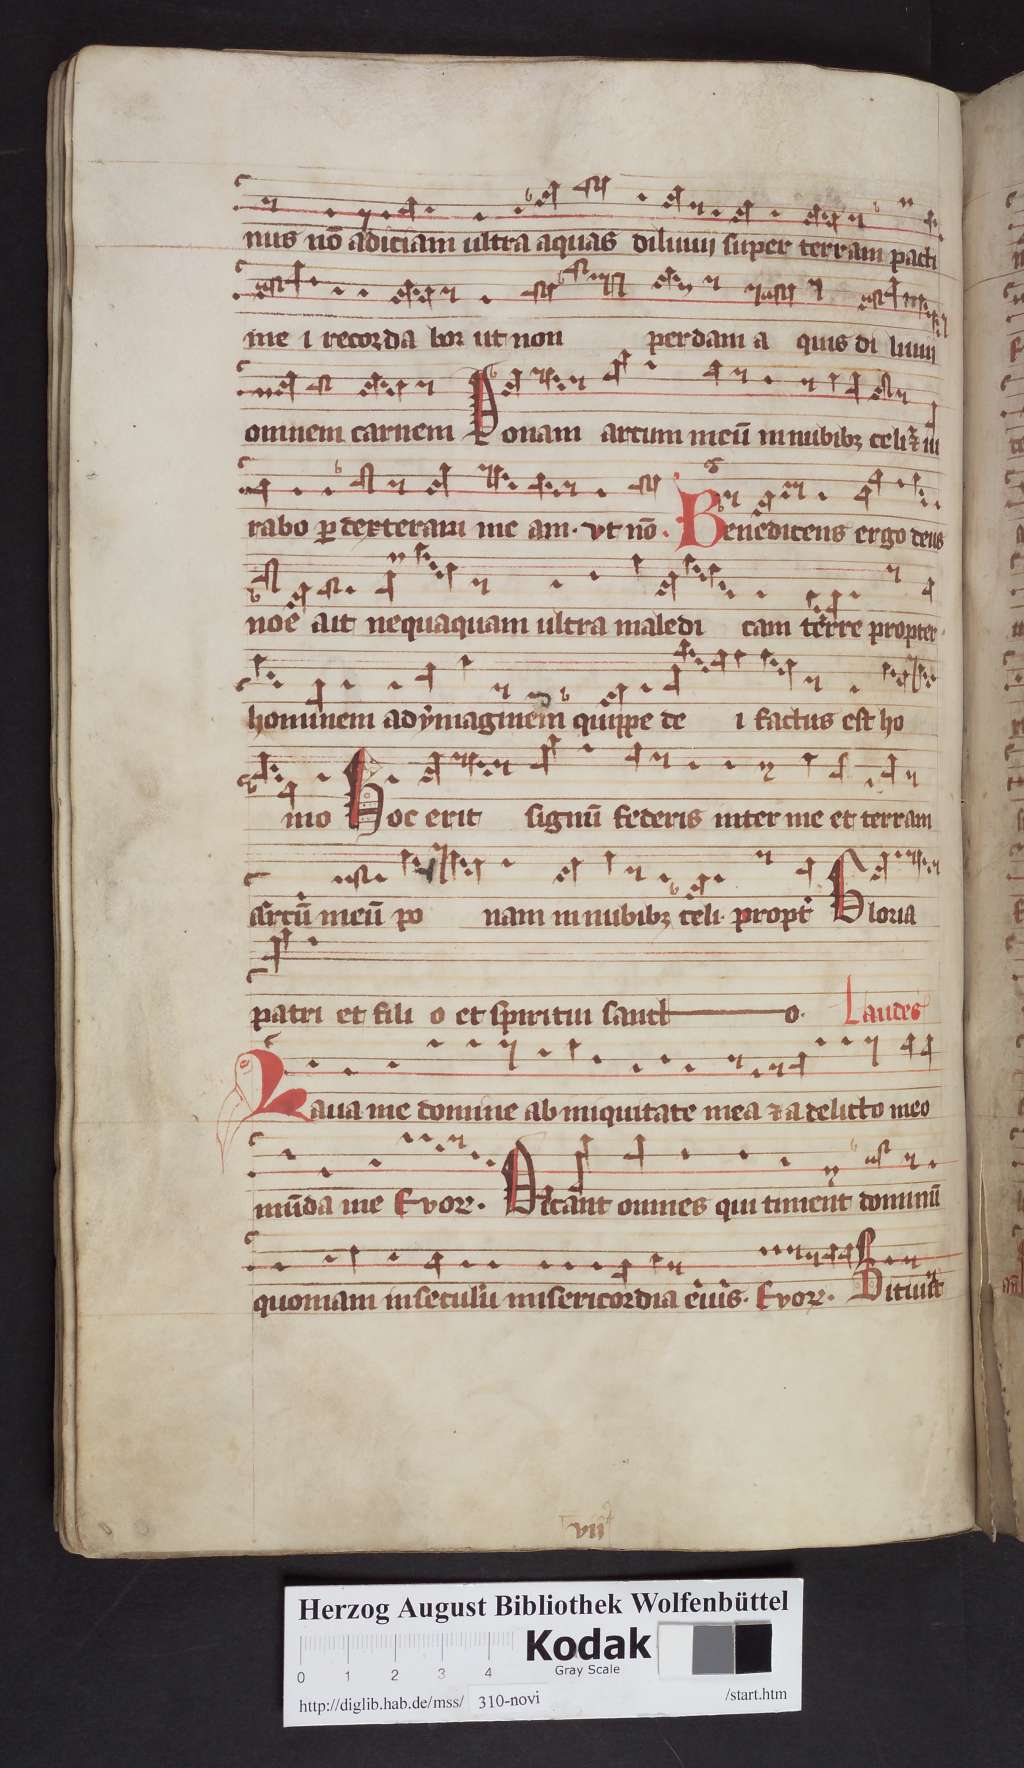 nus nō adiciam ultra aquas diluuij super terram pacti
me i recorda bor ut non perdam a quis di luuij
omnem carnem Ponam arcum meū in nubibꝫ celi ⁊ iu
rabo ꝑ dexteram me am. vt nō. Benedicens ergo deus
noe ait nequaquam ultra maledi cam terre propter
hominem ad ymaginem quippe de i factus est ho
mo Hoc erit signū federis inter me et terram
Arcū meū po nam in nubibꝫ celi. propt̛ Gloria
patri et fili o et spiritui sanct o. Laudes
Laua me domine ab iniquitate mea ⁊ a delicto meo
mūda me Evoꝝ. Dicant omnes qui timent dominū
quoniam in seculū misericordia eius. Evoꝝ. Sitiuit
vii
Herzog August Bibliothek Wolfenbüttel
Kodak
Gray Scale
0 1 2 3 4
http://diglib.hab.de/mss/ 310-novi /start.htm